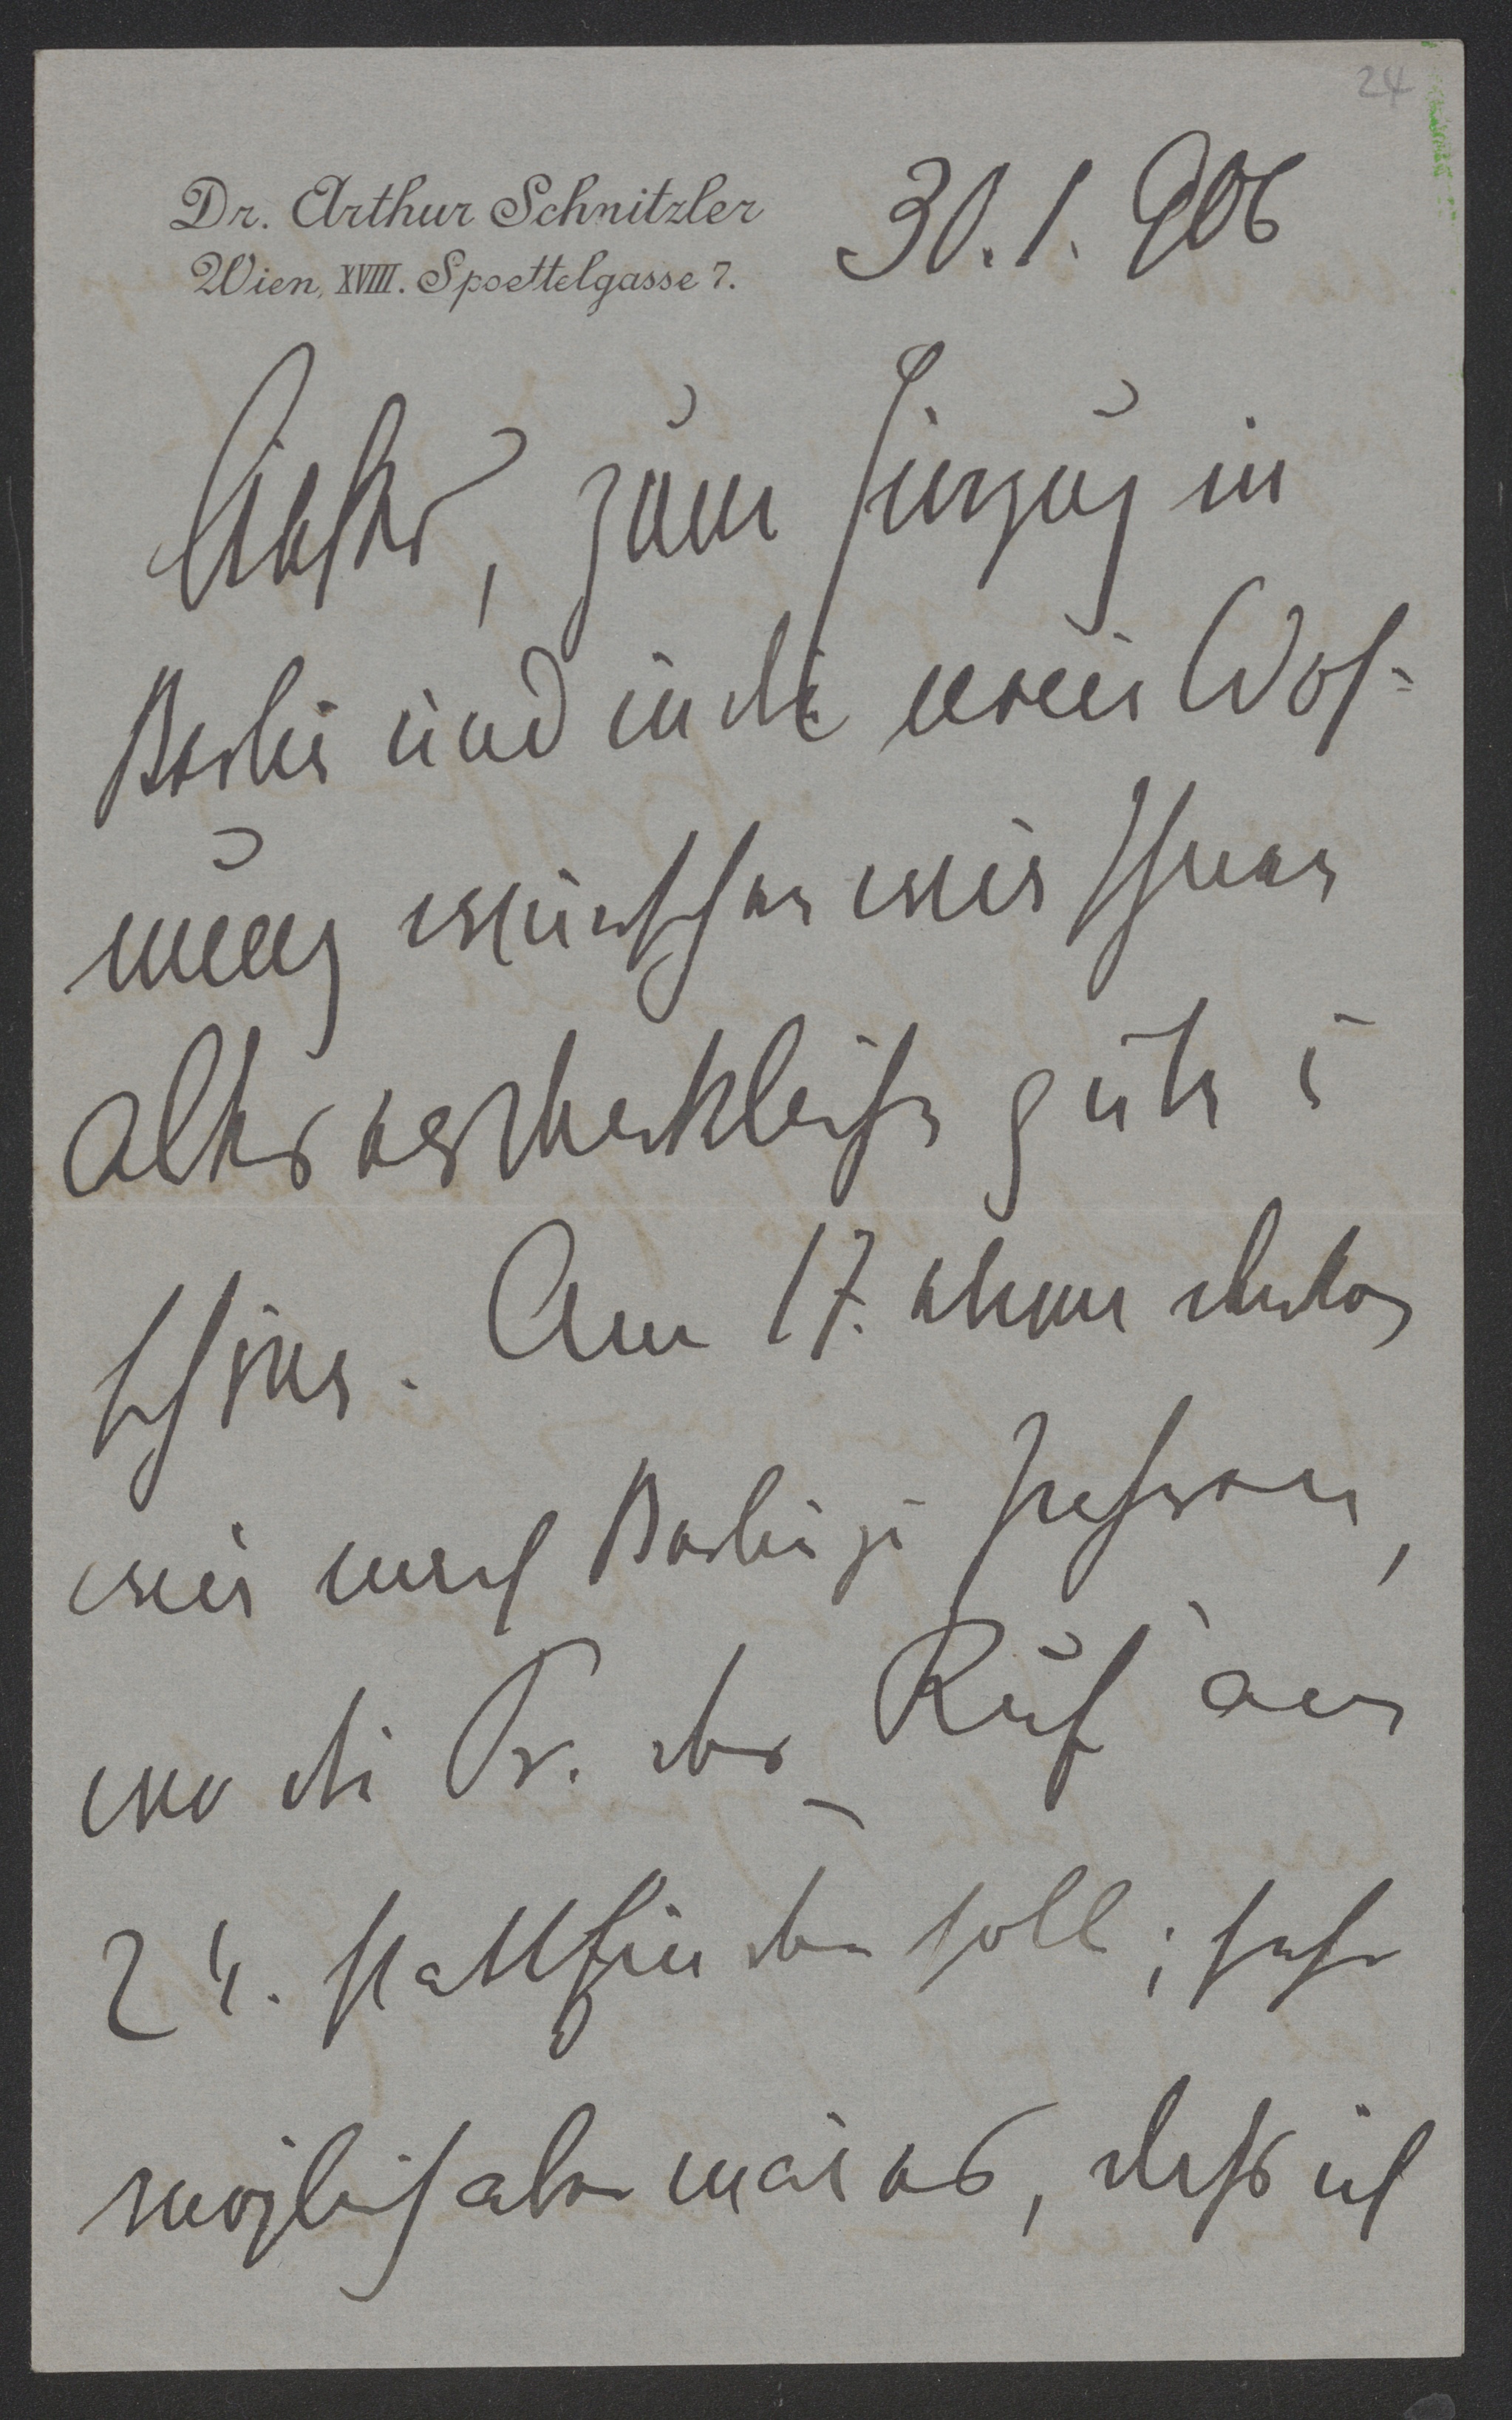 24
Dr. Arthur Schnitzler
Wien, XVIII. Spoettelgasse 7.
30. 1. 906
Liebster, zum Einzug in
Berlin und in die neue Woh-
nung wünschen wir Ihnen
alles erdenkliche gute u
schöne. Am 17. denken
wir nach Berlin zu fahren,
wo die Pr. des Ruf am
24. stattfinden soll; sehr
möglich aber wär es, dass ich